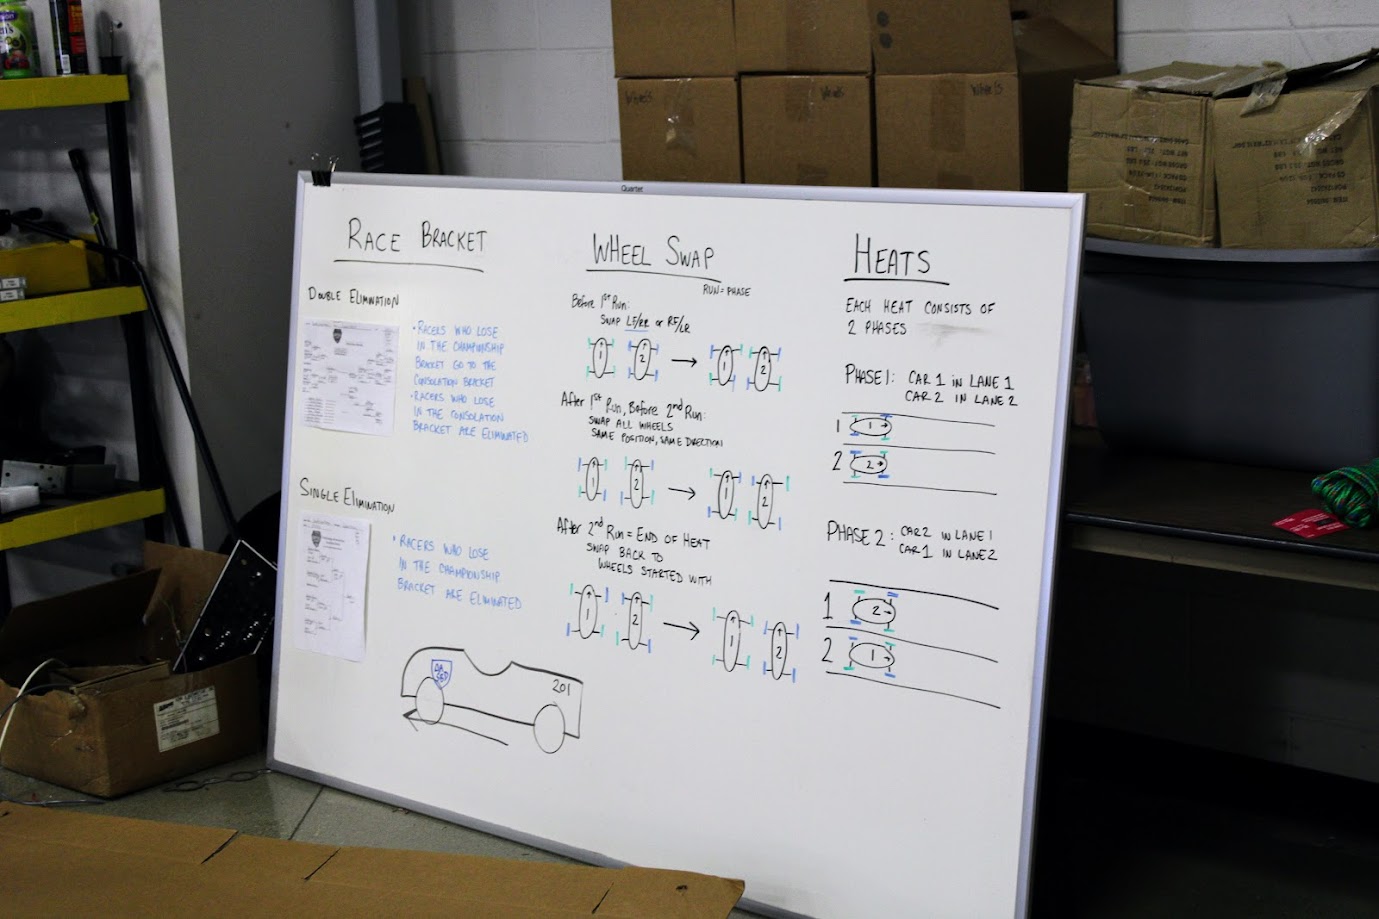 Quartet
RACE BRACKET
DOUBLE ELIMINATION
• RACERS WHO LOSE
IN THE CHAMPIONSHIP
BRACKET GO TO THE
CONSOLATION BRACKET
• RACERS WHO LOSE
IN THE CONSOLATION
BRACKET ARE ELIMINATED
SINGLE ELIMINATION
• RACERS WHO LOSE
IN THE CHAMPIONSHIP
BRACKET ARE ELIMINATED
201
WHEEL SWAP
RUN = PHASE
Before 1st Run:
SWAP LF/RR or RF/LR
1 2 → 1 2
After 1st Run, Before 2nd Run:
SWAP ALL WHEELS
SAME POSITION, SAME DIRECTION
1 2 → 1 2
After 2nd Run = END OF HEAT
SWAP BACK TO
WHEELS STARTED WITH
1 2 → 1 2
HEATS
EACH HEAT CONSISTS OF
2 PHASES
PHASE 1: CAR 1 IN LANE 1
CAR 2 IN LANE 2
1 1
2 2
PHASE 2: CAR 2 IN LANE 1
CAR 1 IN LANE 2
1 2
2 1
Wheels
Wheels
Wheels